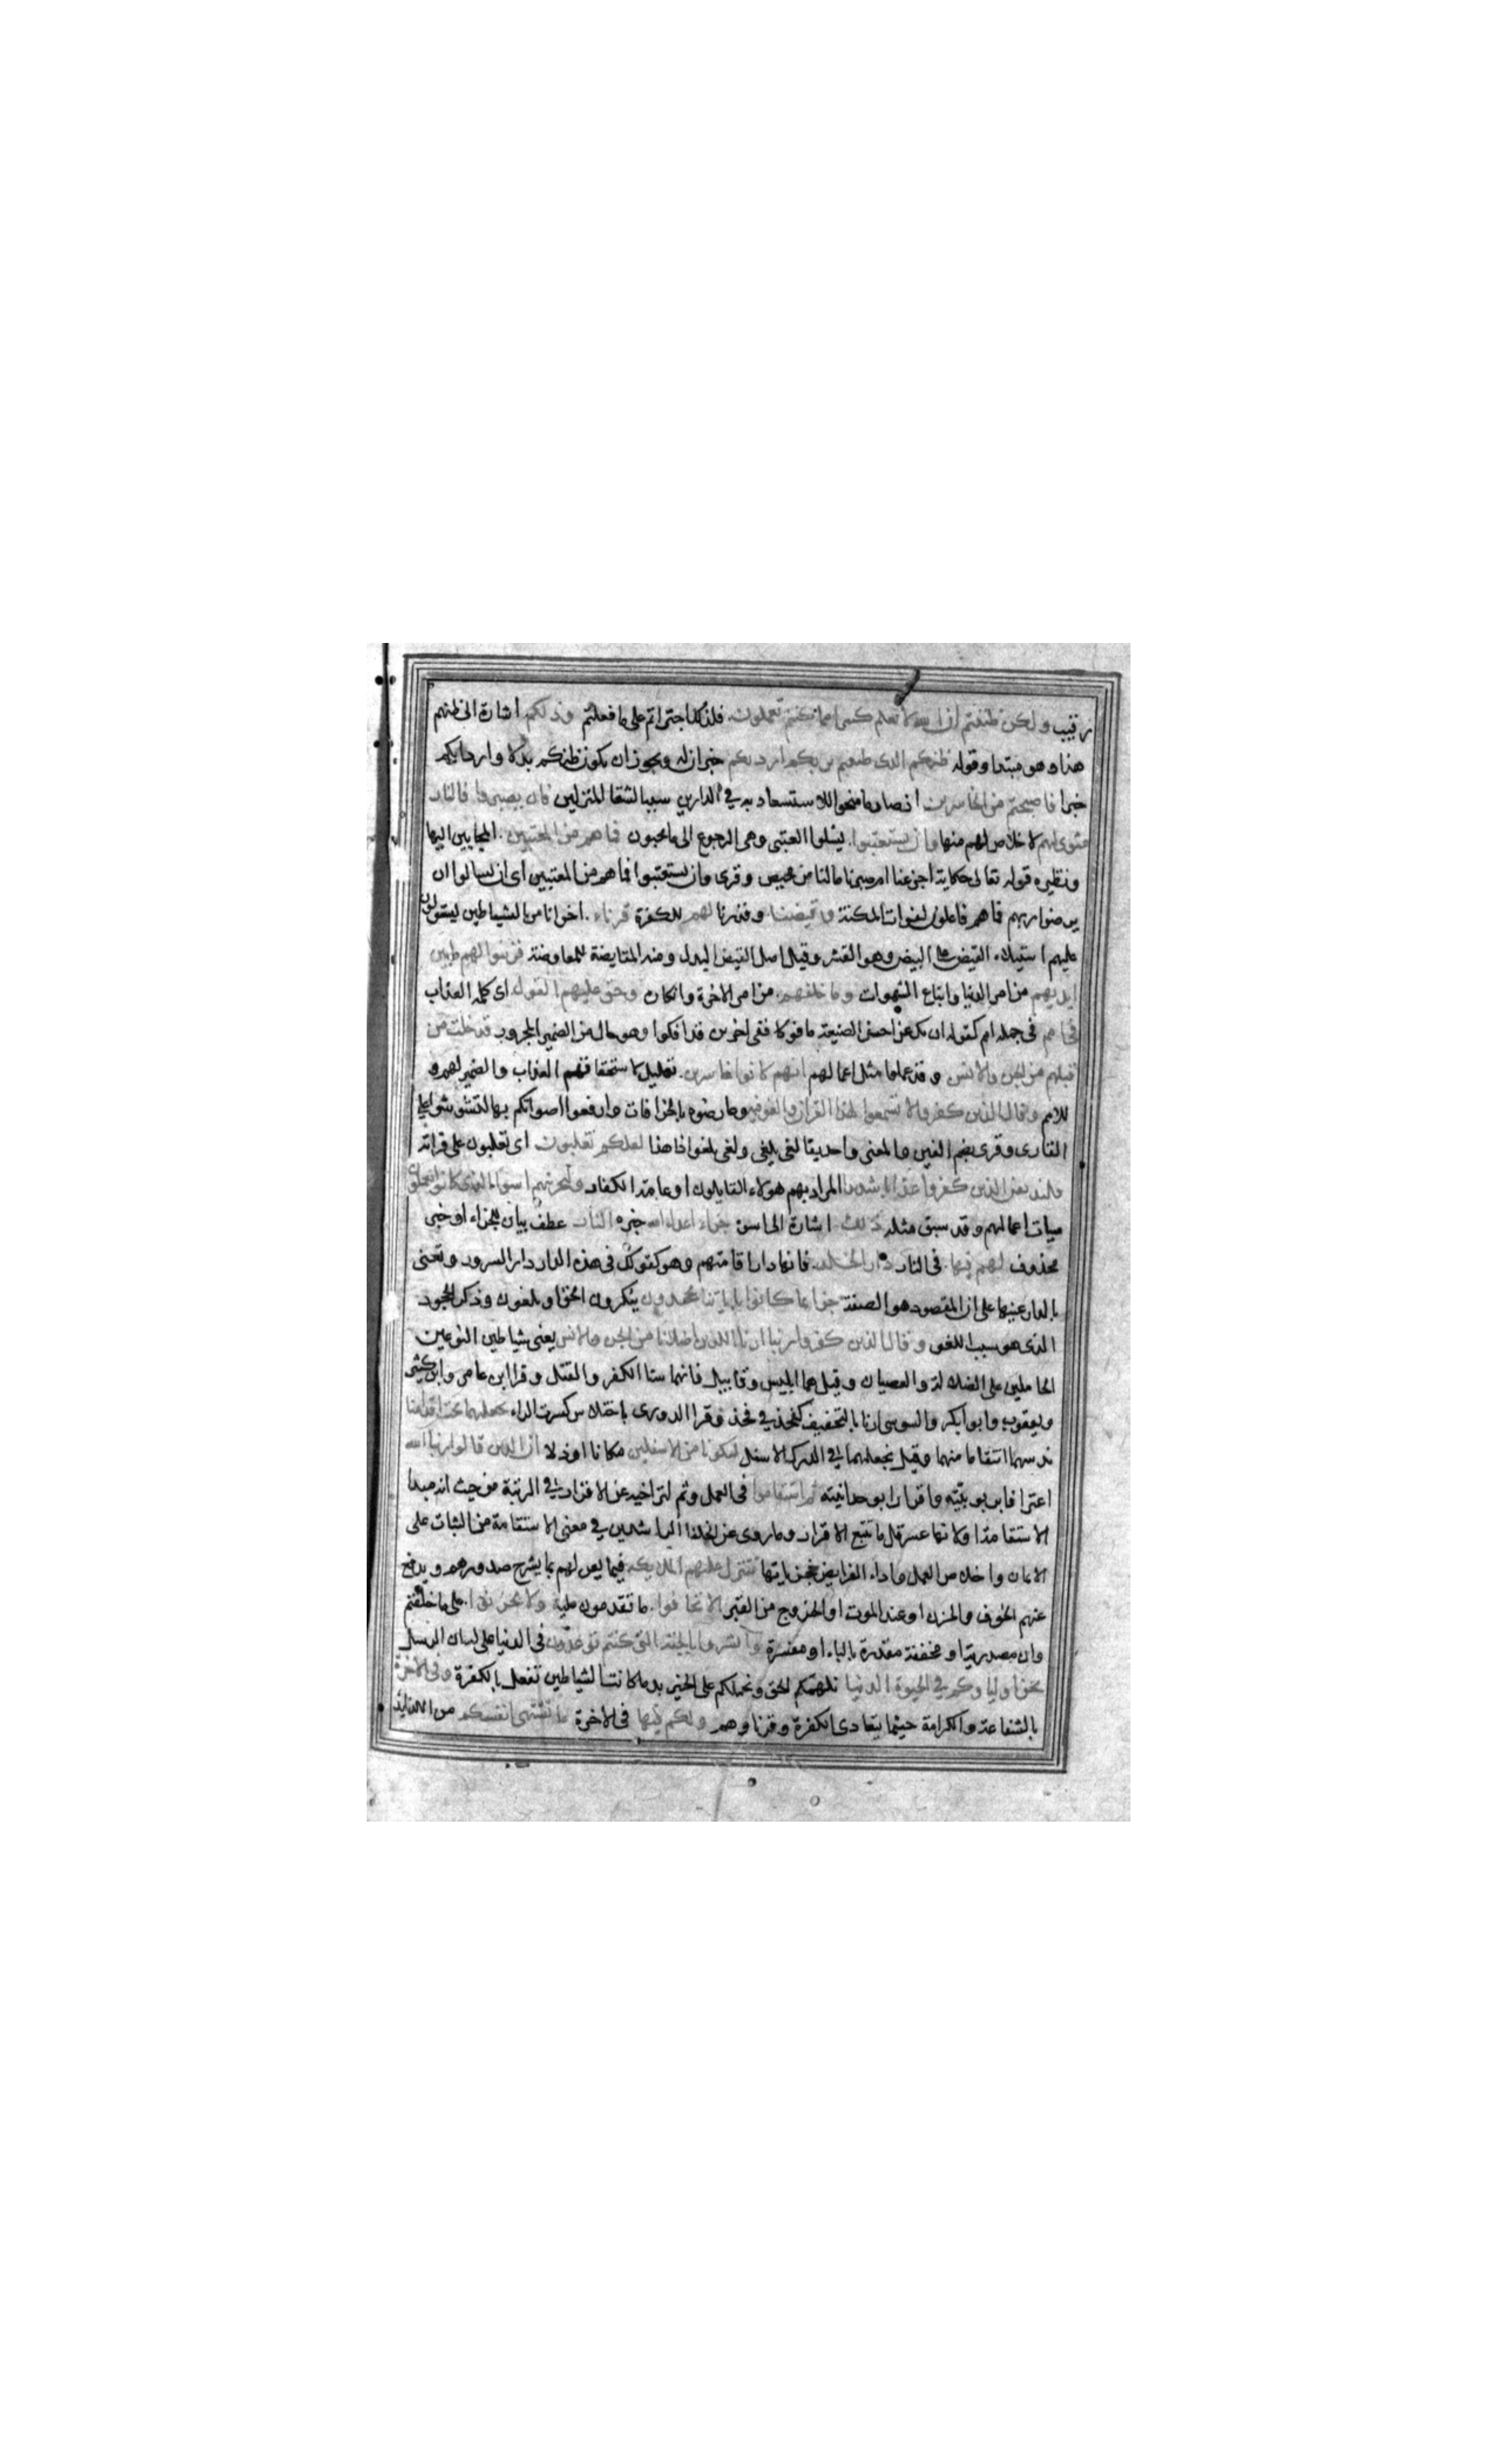 رقيب ولكن ظننتم ان الله لا يعلم كثيرا مما كنتم تعملون فلذلك اجتراتم على ما فعلتم وذلكم اشارة الى ظنهم
هذا وهو مبتدا وقوله ظنكم الذى ظننتم بربكم ارديكم خبران له ويجوز ان يكون ظنكم بدلا وارديكم
خبرا فاصبحتم من الخاسرين اذ صار ما منحوا للاستسعاد به في الدارين سببا لشقا المنزلين فان يصبروا فالنار
مثوى لهم لا خلاص لهم منها وان يستعتبوا يسئلوا العتبى وهى الرجوع الى ما يحبون فما هم من المعتبين المجابين اليها
ونظيره قوله تعالى حكاية اجزعنا ام صبرنا ما لنا من محيص وقرى وان يستعتبوا فما هم من المعتبين اى ان يسالوا ان
يرضوا ربهم فما هم فاعلون لفوات المكنة وقيضنا وقدرنا لهم للكفرة قرناء اخوانا من الشياطين يستولون
عليهم استيلاء القيض على البيض وهو القشر وقيل اصل القيض البدل ومنه المقايضة للمعاوضة فزينوا لهم ما بين
ايديهم من امر الدنيا واتباع الشهوات وما خلفهم من امر الاخرة وانكان وحق عليهم القول اى كلمة العذاب
في امم في جملة امم كقوله ان تك عن احسن الصنيعة مافوكا ففى اخرين قد افكوا وهو حال من الضمير المجرور قد خلت من
قبلهم من الجن والانس وقد عملوا مثل اعمالهم انهم كانوا خاسرين تعليل لاستحقاقهم العذاب والضمير لهم و
للامم وقال الذين كفروا لا تسمعوا لهذا القران والغوا فيه وعارضوه بالخرافات وارفعوا اصواتكم بها لتشوشوا على
القارى وقرى بضم الغين والمعنى واحد يقا لغى يلغى ولغى يلغوا اذا هذا لعلكم تغلبون اى تغلبون على قراته
فلنذيقن الذين كفروا عذابا شديدا المراد بهم هولاء القايلون او عامة الكفار ولنجزينهم اسواء الذى كانوا يعملون
سيات اعمالهم وقد سبق مثله ذلك اشارة الى اسو جزاء اعداء الله خبره النار عطف بيان للجزاء او خبر
محذوف لهم فيها في النار دار الخلد فانها دار اقامتهم وهو كقولك في هذه الدار دار السرور وتعنى
بالدار عينها على ان المقصود هو الصفة جزا بما كانوا باياتنا يجحدون ينكرون الحق او يلغون وذكر الجحود
الذى هو سبب اللغو وقال الذين كفروا ربنا ارنا اللذين اضلانا من الجن والانس يعنى شياطين النوعين
الحاملين على الضلالة والعصيان وقيل هما ابليس وقابيل فانهما سنا الكفر والقتل وقرا ابن عامر وابن كثير
ويعقوب وابو بكر والسوسى ارنا بالتخفيف كفخذ في فخذ وقرا الدورى باختلاس كسرة الراء نجعلهما تحت اقدامنا
ندسهما انتقاما منهما وقيل نجعلهما في الدرك الاسفل ليكونا من الاسفلين مكانا او ذلا ان الذين قالوا ربنا الله
اعترافا بربوبيته واقرارا بوحدانيته ثم استقاموا في العمل وثم لتراخيه عن الاقرار في الرتبة من حيث انه مبدا
الاستقامة او لانها عسر قل ما تتبع الاقرار وما روى عن الخلفا الراشدين في معنى الاستقامة من الثبات على
الايمان واخلاص العمل واداء الفرايض فجزياتها تتنزل عليهم الملايكة فيما يعن لهم بما يشرح صدورهم ويدفع
عنهم الخوف والحزن او عند الموت او الخروج من القبر الا تخافوا ما تقدمون عليه ولا تحزنوا على ما خلفتم
وان مصدرية او مخففة مقدرة بالباء او مفسرة وابشروا بالجنة التى كنتم توعدون في الدنيا على لسان الرسل
نحن اولياوكم في الحيوة الدنيا نلهمكم الحق ونحملكم على الخير بدل ما كانت الشياطين تفعل بالكفرة وفى الاخرة
بالشفاعة والكرامة حيثما يتعادى الكفرة وقرناوهم ولكم فيها في الاخرة ما تشتهى انفسكم من اللذايذ